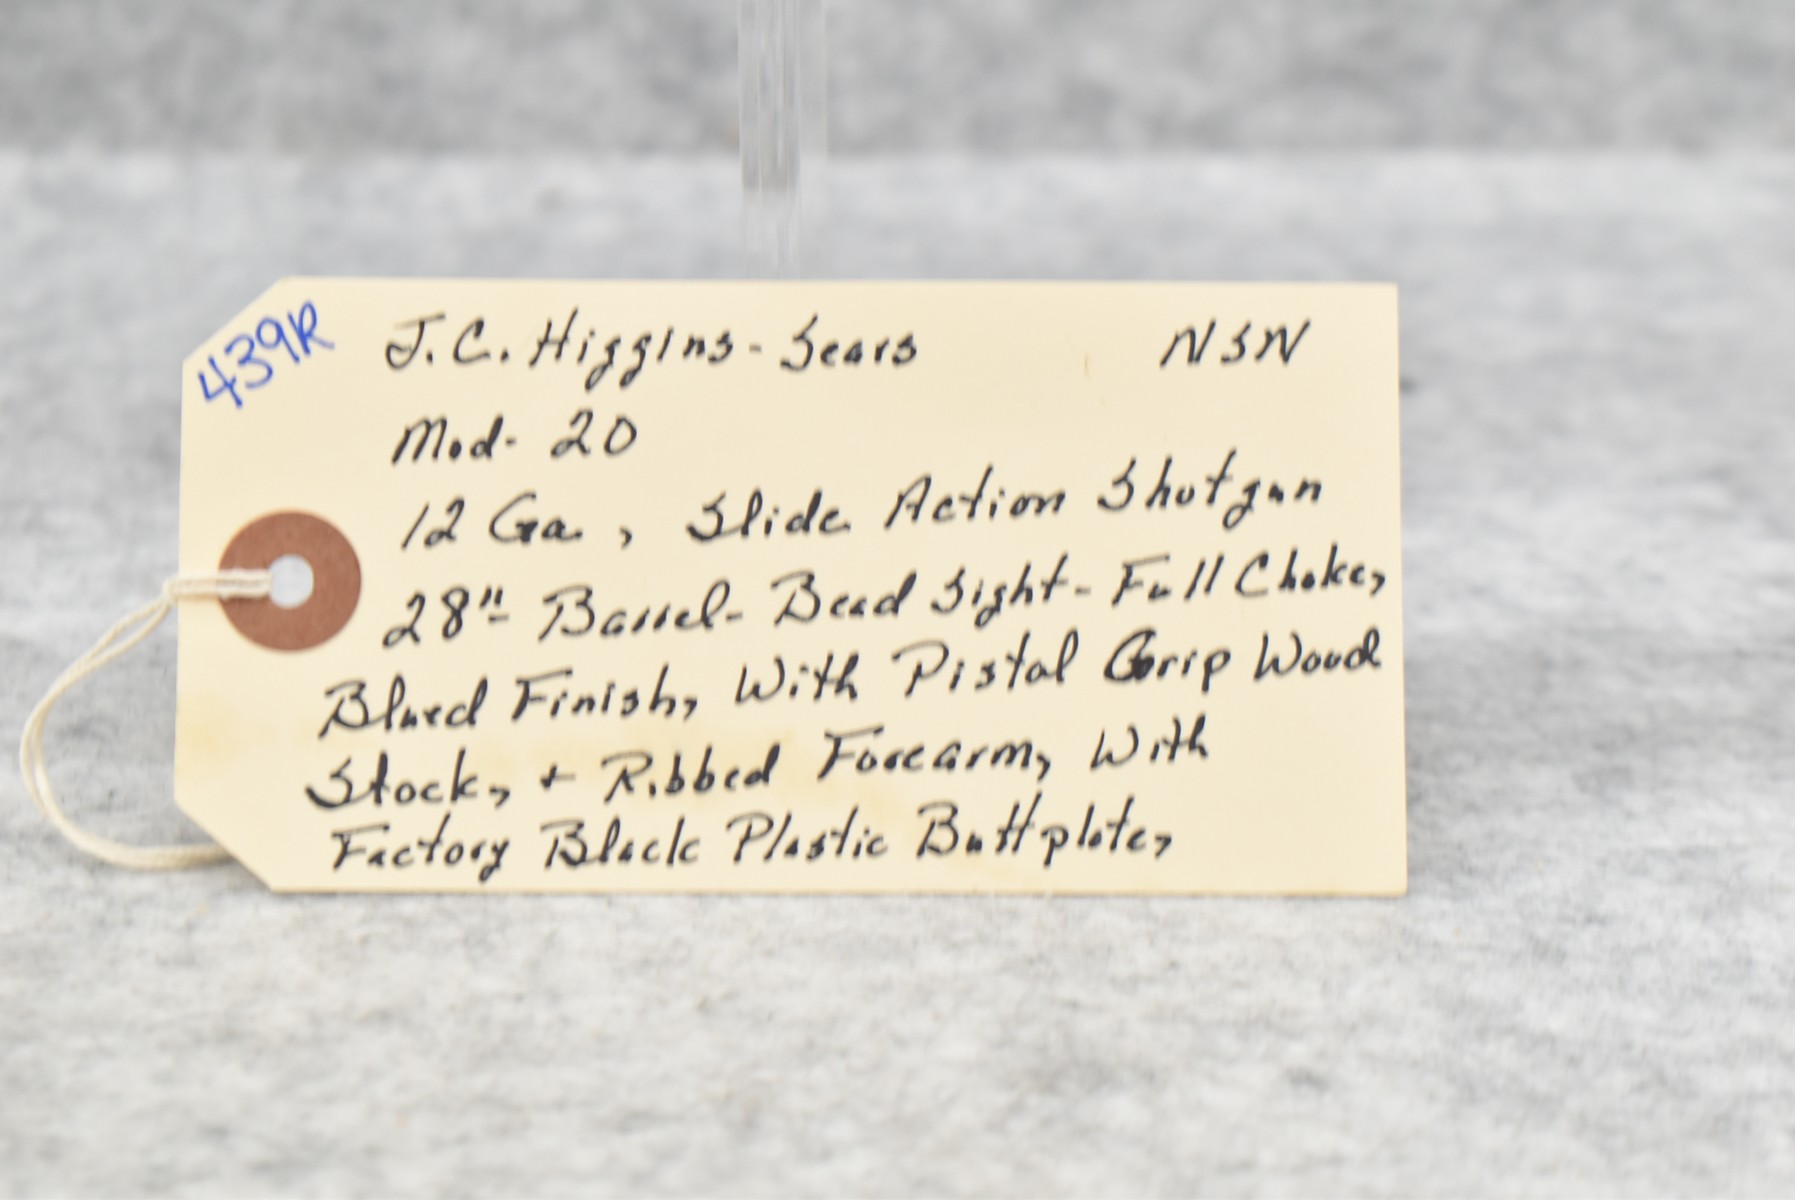 439R
J.C. Higgins - Sears NSN
Mod- 20
12 Ga, Slide Action Shotgun
28"- Barrel- Bead Sight- Full Choke,
Blued Finish, With Pistol Grip Wood
Stock, + Ribbed Forearm, With
Factory Black Plastic Buttplate,